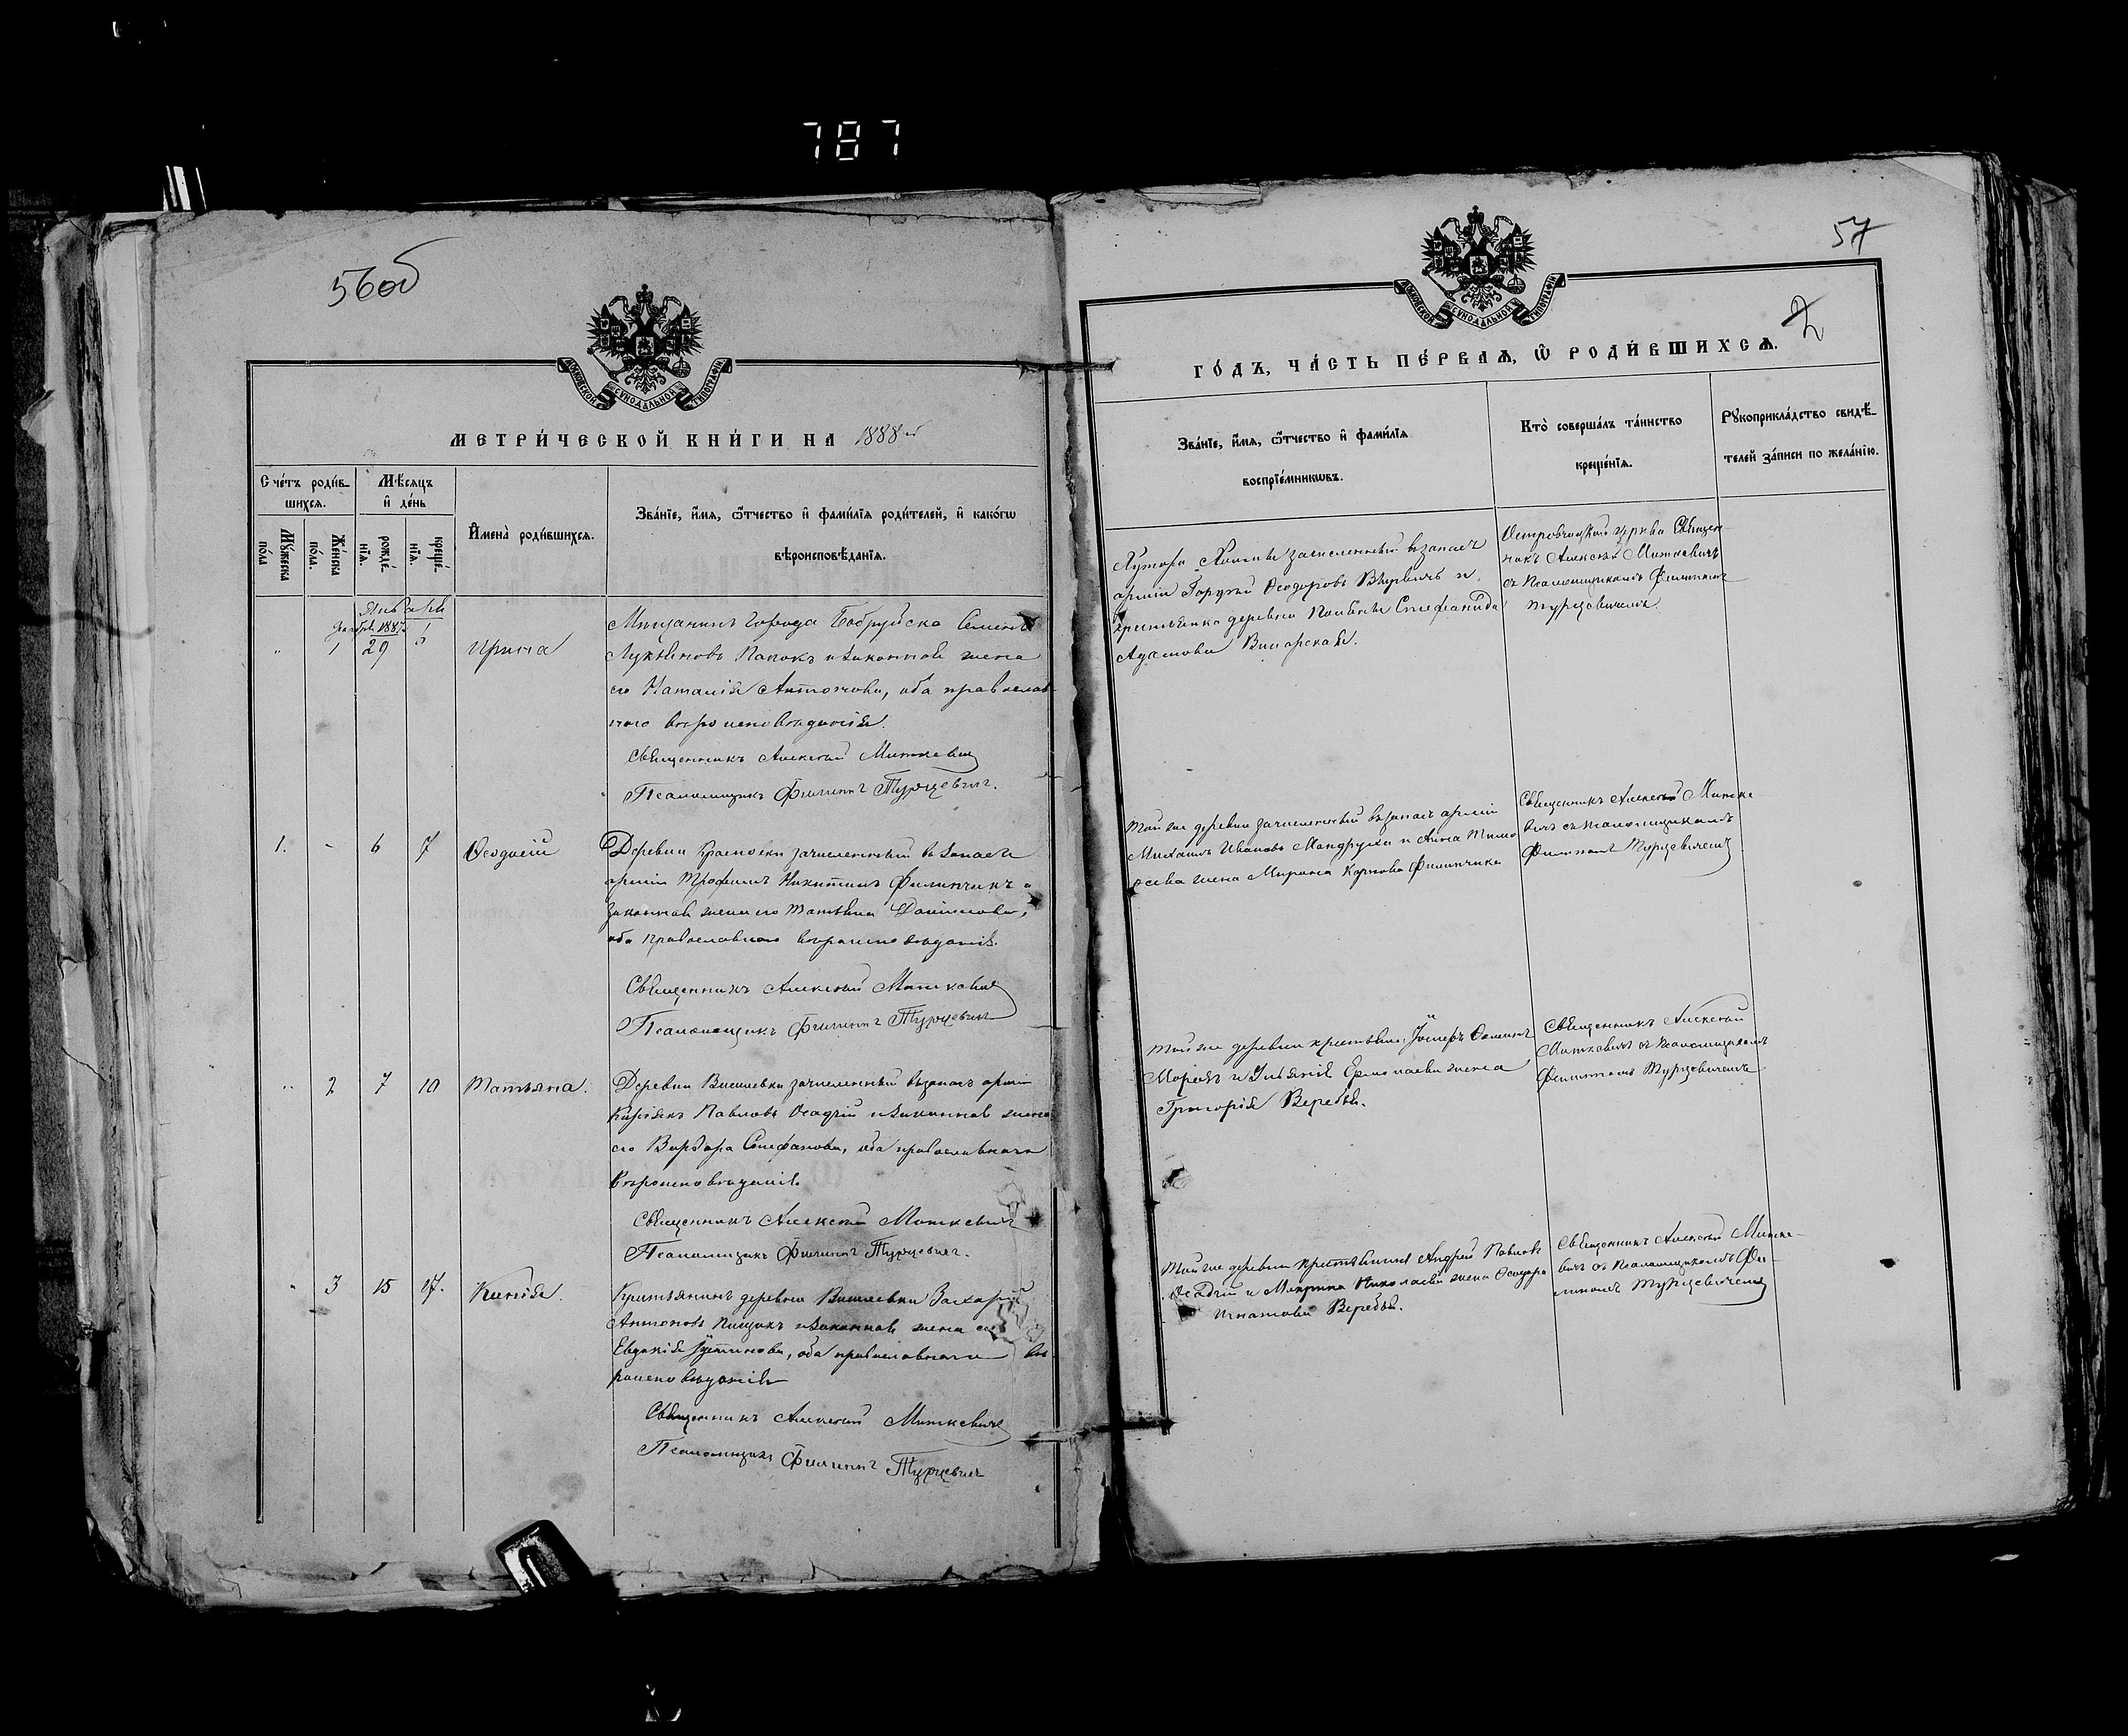 787
56об
МОСКОВСКОЙ СУНОДАЛЬНОЙ ТИПОГРАФІИ
МЕТРИ́ЧЕСКОЙ КНИ́ГИ НА 1888 й
Сче́тъ роди́в-
шихся.
Мѣ́сяцъ
и҆ де́нь
Мꙋ́жеска
по́ла
Же́нска
по́ла.
рожде́-
нїѧ.
креще́-
нїѧ.
И҆мена̀ роди́вшихсѧ.
Зва́нїе, и҆́мѧ, ѻ҆́тчество и҆ фами́лїѧ роди́телей, и҆ како́гѡ
вѣроисповѣ́данїѧ.
Январь
Декабрь 1887
" 1 29 Ирина
Мѣщанинъ города Бобруйска Семенъ
Лукьяновъ Папокъ и законная жена
его Наталія Антонова, оба православ-
наго вѣроисповѣданія.
Священникъ Алексѣй Миткевич
Псаломщикъ Филиппъ Турцевич.
1. - 6 7 Ѳеодосій
Деревни зачисленный въ запасъ
арміи Трофимъ Никитинъ Филипчикъ и
законная жена его Татьяна
оба православнаго вѣроисповѣданія.
Священникъ Алексѣй Миткевич
Псаломщикъ Филиппъ Турцевич
" 2 7 10 Татьяна.
Деревни Вишневки зачисленный въ запасъ арміи
Павловъ Осадчій и законная жена
его Варвара Стефанова, оба православнаго
вѣроисповѣданія
Священникъ Алексѣй Миткевич
Псаломщикъ Филиппъ Турцевич.
" 3 15 17. Ксенія.
Крестьянинъ деревни Вишневки Захарій
Антоновъ Пищикъ и законная жена его
Евдокія Іустинова, оба православнаго вѣ-
роисповѣданія
Священникъ Алексѣй Миткевичъ
Псаломщикъ Филиппъ Турцевич
57
2
МОСКОВСКОЙ СУНОДАЛЬНОЙ ТИПОГРАФІИ
ГО́ДЪ, ЧА́СТЬ ПЕ́РВАѦ, Ѡ҆ РОДИ́ВШИХСѦ.
Зва́нїе, и҆́мѧ, ѻ҆́тчество и҆ фами́лїѧ
воспрїе́мникѡвъ.
Кто̀ соверша́лъ та́инство
креще́нїѧ.
Рꙋкоприкла́дство свидѣ́-
телей за́писи по жела́нїю.
Хутора зачисленный въ запасъ
арміи Ѳеодоровъ и
крестьянка деревни Стефанида
Адамова
церкви Священ-
никъ Алексѣй Миткевичъ
съ Псаломщикомъ Филиппомъ
Турцевичемъ.
Той же деревни зачисленный въ запасъ арміи
Михаилъ Ивановъ Мандрука и Анна Тимо-
ѳеева жена Мирона Карпова Филипчика
Священникъ Алексѣй Митке-
вичъ съ псаломщикомъ
Филиппомъ Турцевичемъ
Той же деревни крестьян. Іосифъ
и Ульянія Ермолаева жена
Григорія Веребья.
Священникъ Алексѣй
Миткевичъ съ псаломщикомъ
Филиппомъ Турцевичемъ
Той же деревни крестьянинъ Андрей Павловъ
Осадчій и Марина Николаева жена Ѳеодора
Игнатова Веребья.
Священникъ Алексѣй Митке-
вичъ съ Псаломщикомъ Фи-
липпомъ Турцевичемъ